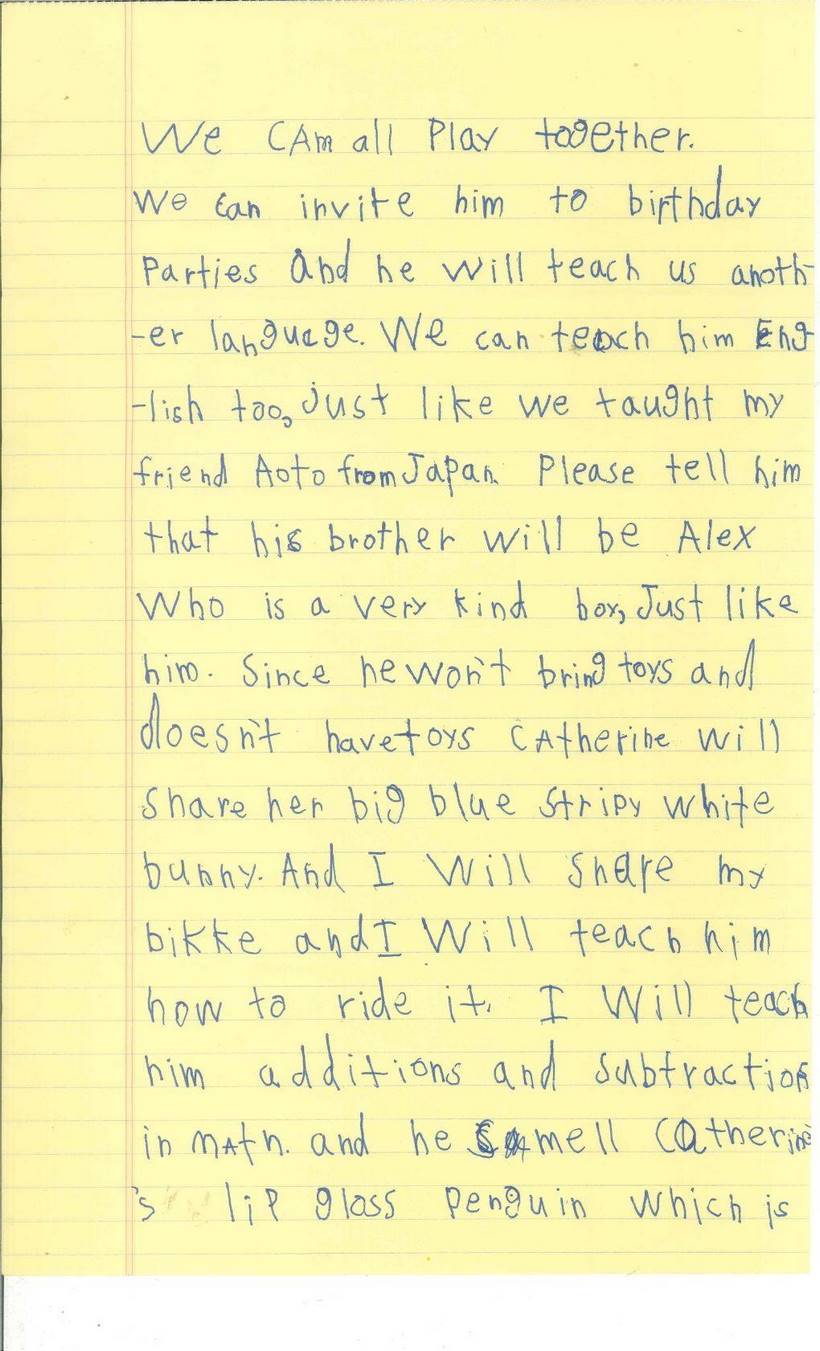 We CAm all Play together.
We can invite him to birthday
Parties And he will teach us anoth-
-er language. We can teach him Eng
-lish too, just like we taught my
friend Aoto from Japan. Please tell him
that his brother will be Alex
Who is a very kind boy, Just like
him. Since he won't bring toys and
doesn't have toys CAtherine will
Share her big blue Stripy white
bunny. And I Will Share my
bikke and I Will teach him
how to ride it. I Will teach
him additions and Subtractions
in mAth. and he Smell Catherine
's lip gloss Penguin which is